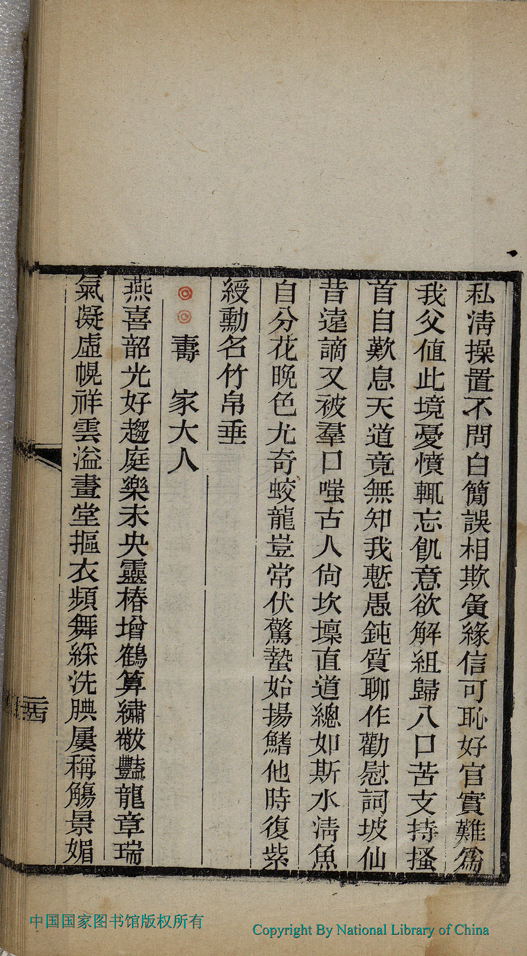 私淸操置不問白簡誤相欺夤緣信可恥好官實難爲
我父値此境憂憤輒忘飢意欲解組歸八口苦支持搔
首自歎息天道竟無知我慙愚鈍質聊作勸慰詞坡仙
昔遠謫又被羣口嗤古人尙坎壈直道總如斯水淸魚
自分花晚色尤奇蛟龍豈常伏驚蟄始揚鰭他時復紫
綬勳名竹帛垂
壽　家大人
燕喜韶光好趨庭樂未央靈椿增鶴算繡黻豔龍章瑞
氣凝虛幌祥雲溢畫堂摳衣頻舞綵洗腆屢稱觴景媚
中国国家图书馆版权所有
Copyright By National Library of China